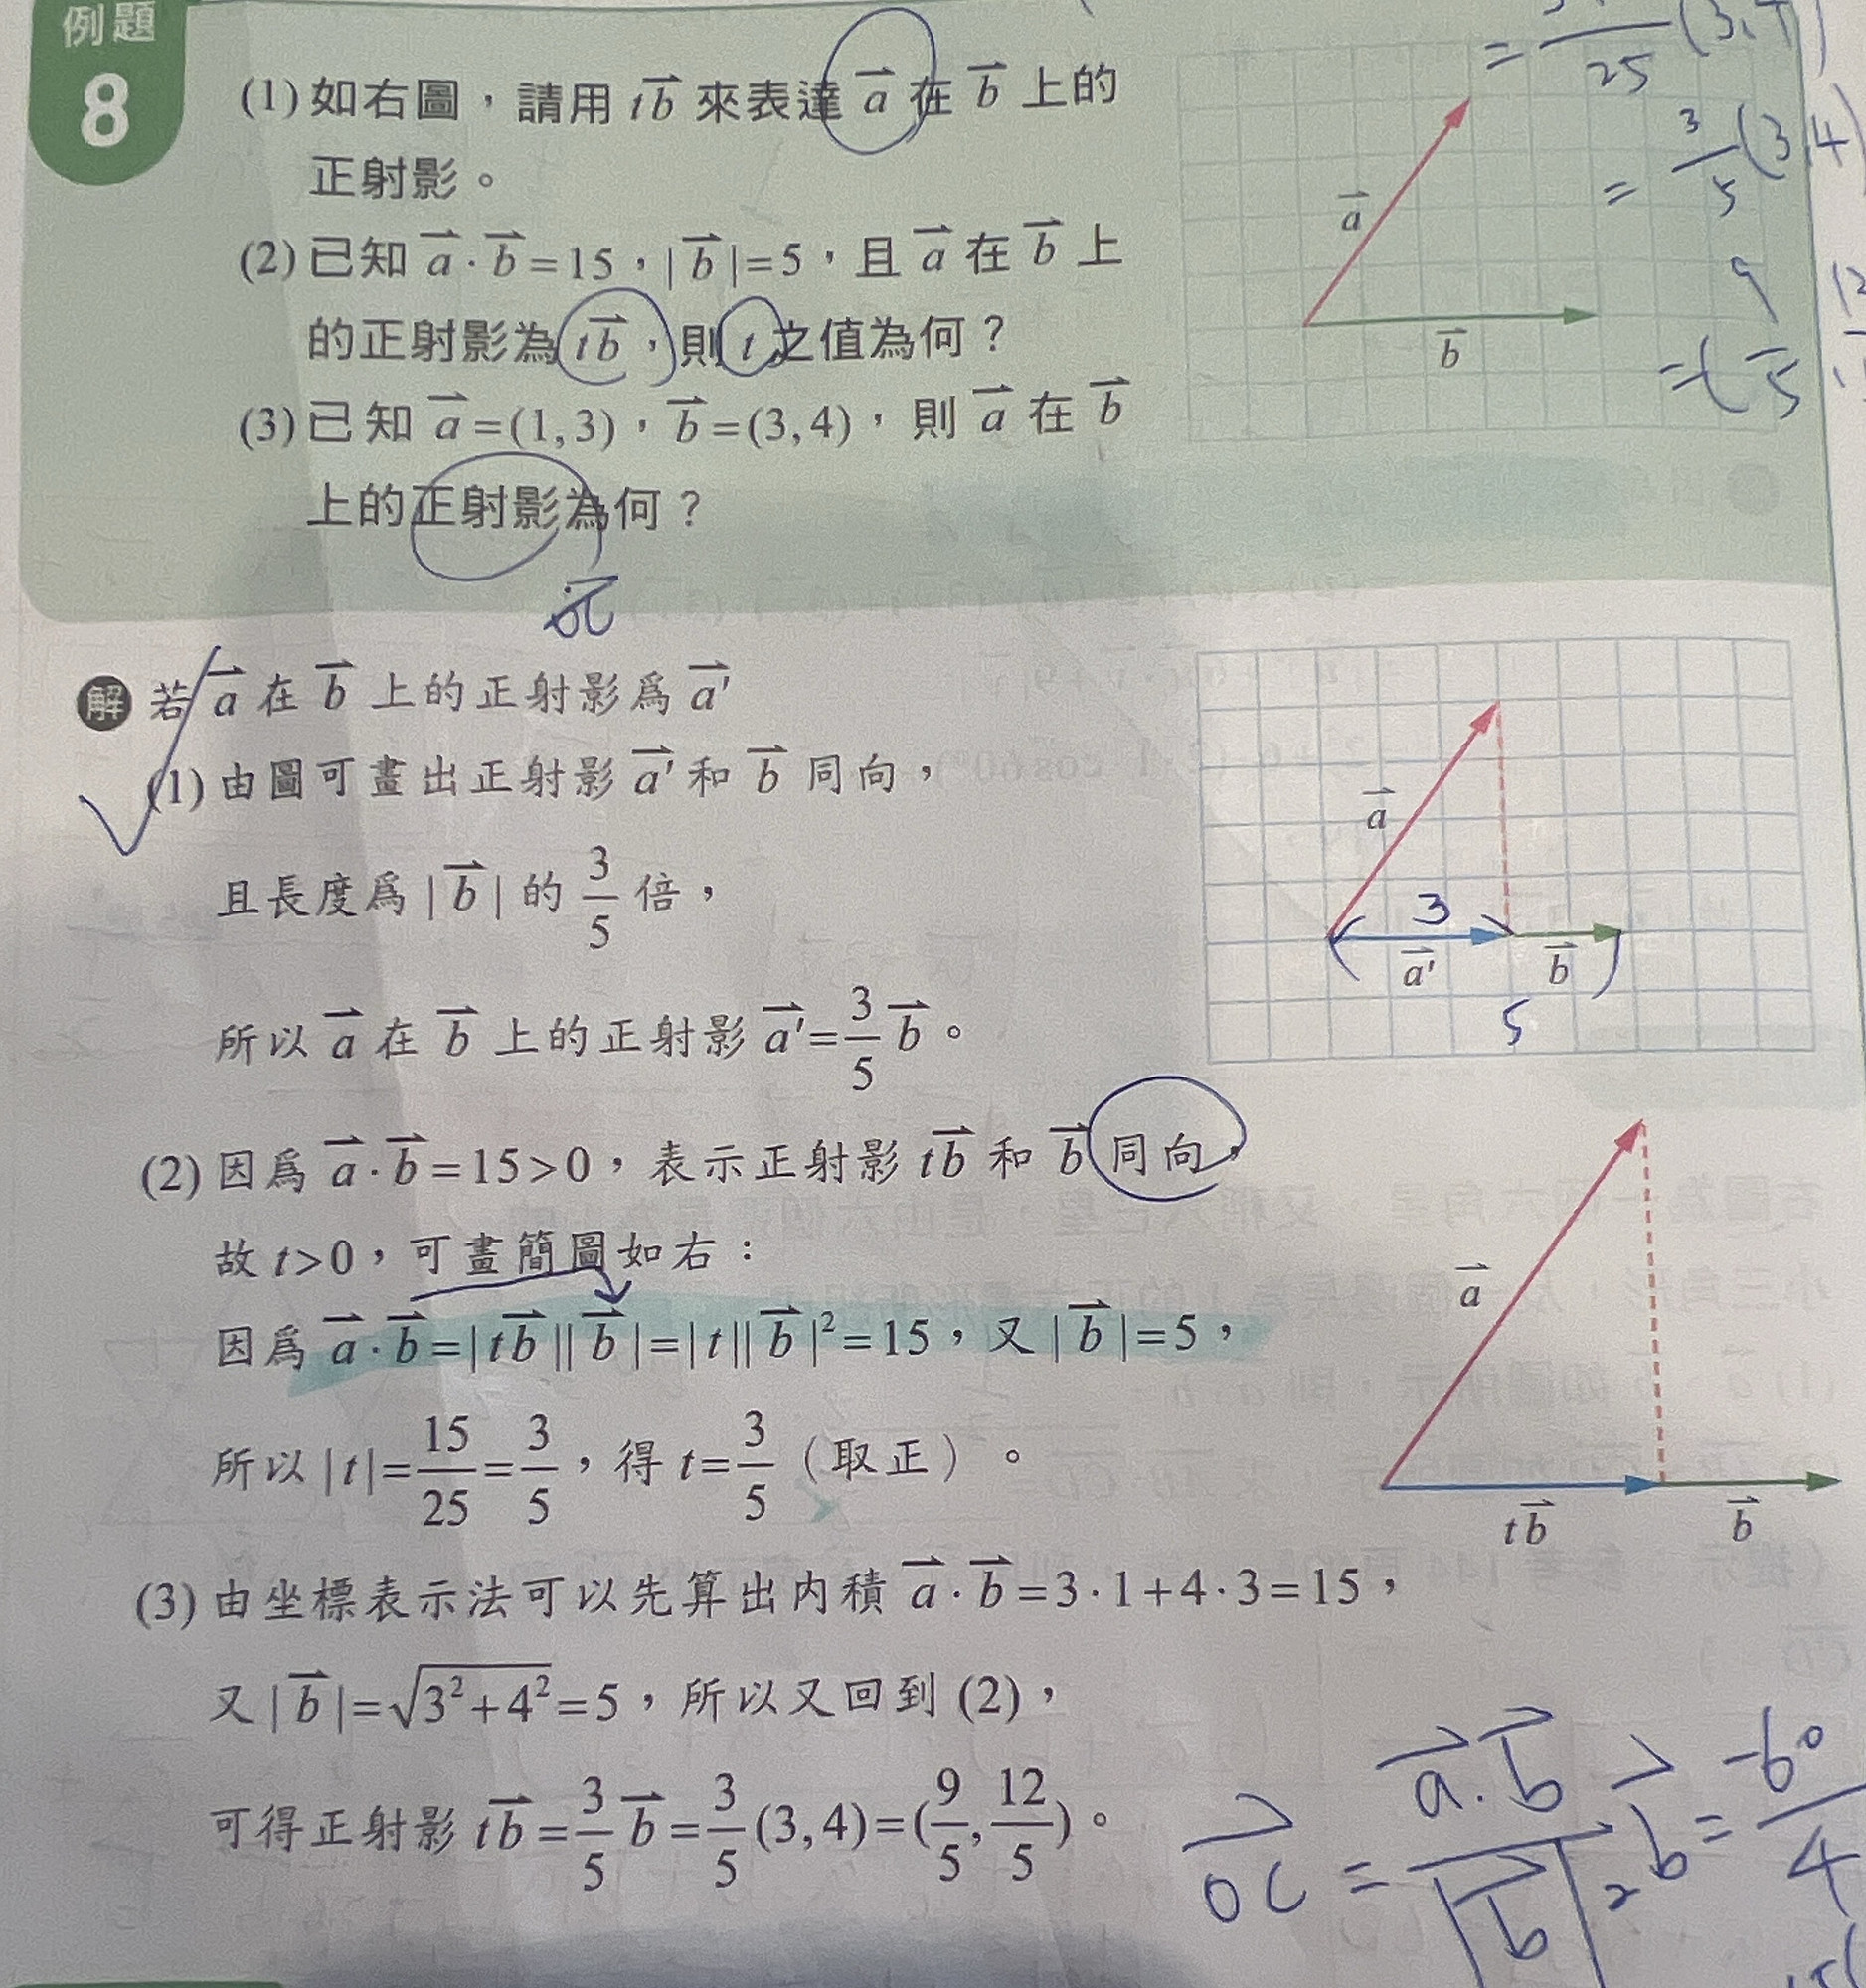 例題
8
(1)如右圖，請用 t\overrightarrow{b} 來表達 \overrightarrow{a} 在 \overrightarrow{b} 上的
正射影。
(2)已知 \overrightarrow{a}·\overrightarrow{b}=15，|\overrightarrow{b}|=5，且 \overrightarrow{a} 在 \overrightarrow{b} 上
的正射影為 t\overrightarrow{b}，則 t 之值為何？
(3)已知 \overrightarrow{a}=(1,3)，\overrightarrow{b}=(3,4)，則 \overrightarrow{a} 在 \overrightarrow{b}
上的正射影為何？
\overrightarrow{a}
\overrightarrow{b}
= 3/5 (3,4)
解 若 \overrightarrow{a} 在 \overrightarrow{b} 上的正射影為 \overrightarrow{a'}
(1)由圖可畫出正射影 \overrightarrow{a'} 和 \overrightarrow{b} 同向，
且長度為 |\overrightarrow{b}| 的 3/5 倍，
所以 \overrightarrow{a} 在 \overrightarrow{b} 上的正射影 \overrightarrow{a'}=3/5 \overrightarrow{b}。
\overrightarrow{a}
3
\overrightarrow{a'} \overrightarrow{b}
5
(2)因為 \overrightarrow{a}·\overrightarrow{b}=15>0，表示正射影 t\overrightarrow{b} 和 \overrightarrow{b} 同向，
故 t>0，可畫簡圖如右：
因為 \overrightarrow{a}·\overrightarrow{b}=|t\overrightarrow{b}||\overrightarrow{b}|=|t||\overrightarrow{b}|²=15，又 |\overrightarrow{b}|=5，
所以 |t|=15/25=3/5，得 t=3/5（取正）。
\overrightarrow{a}
t\overrightarrow{b} \overrightarrow{b}
(3)由坐標表示法可以先算出內積 \overrightarrow{a}·\overrightarrow{b}=3·1+4·3=15，
又 |\overrightarrow{b}|=√(3²+4²)=5，所以又回到 (2)，
可得正射影 t\overrightarrow{b}=3/5 \overrightarrow{b}=3/5 (3,4)=(9/5, 12/5)。
\overrightarrow{OC} = \overrightarrow{a}·\overrightarrow{b}/|\overrightarrow{b}|² \overrightarrow{b} =